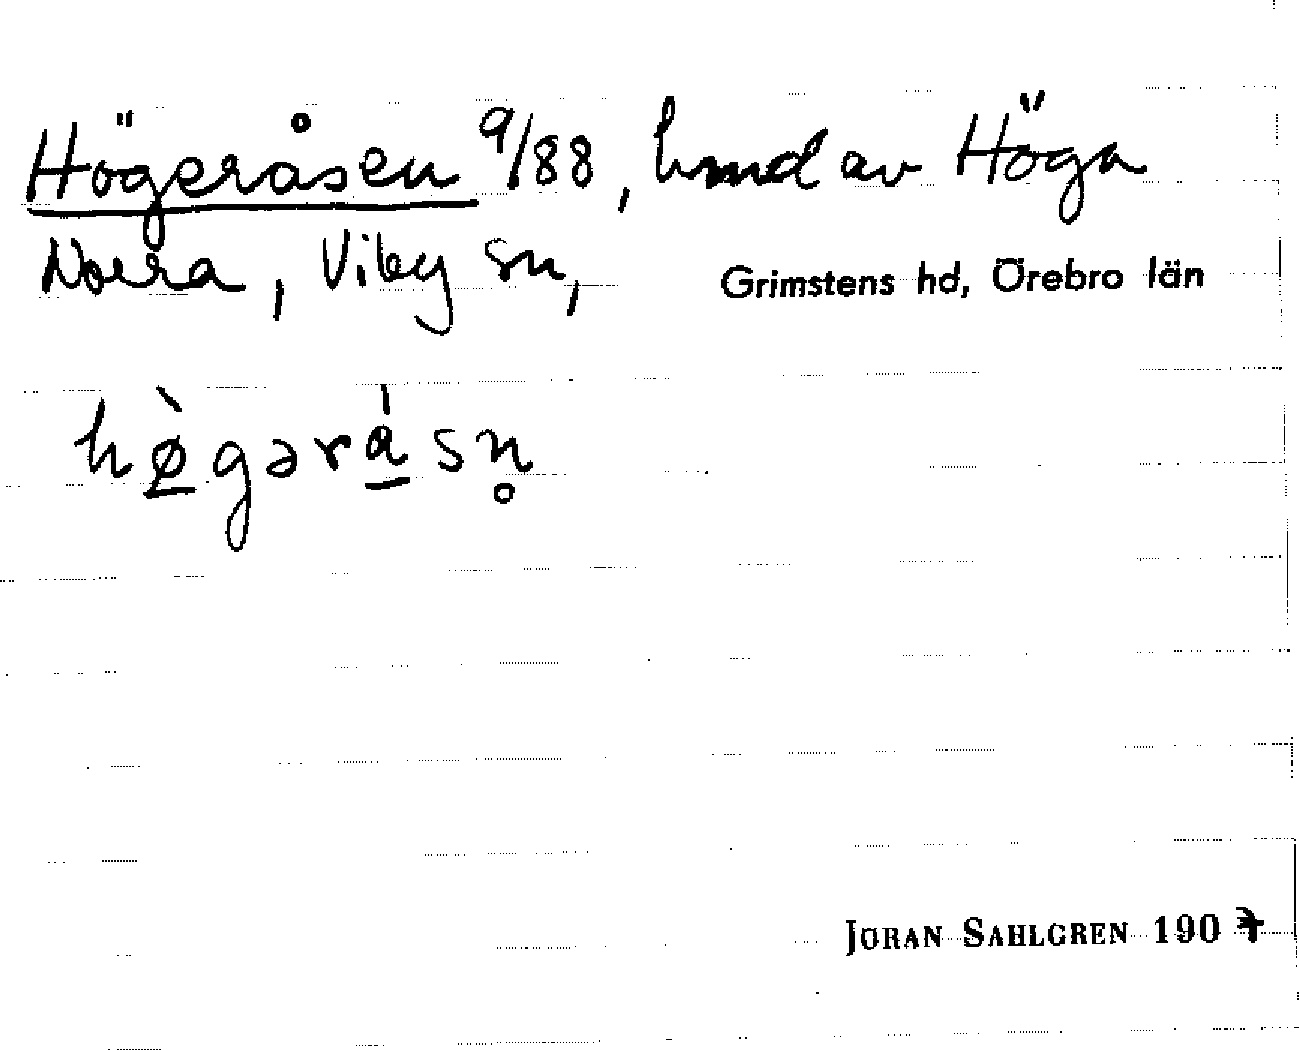 Högeråsen 9/88, hmd av Höga
Norra, Viby sn, Grimstens hd, Örebro län
hø̀gəråsn̥
JÖRAN SAHLGREN 1907